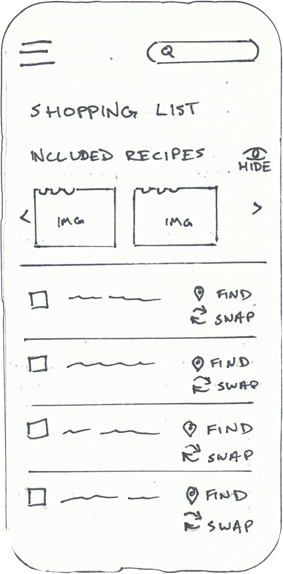 SHOPPING LIST
INCLUDED RECIPES
HIDE
IMG IMG
FIND
SWAP
FIND
SWAP
FIND
SWAP
FIND
SWAP